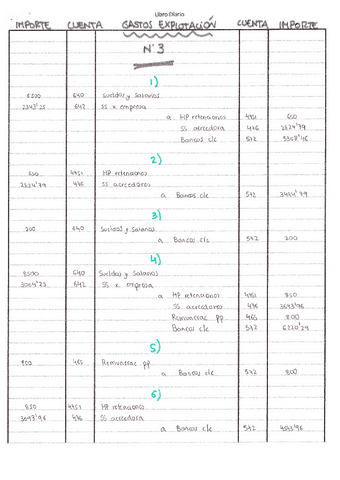 Libro Diario
IMPORTE CUENTA GASTOS EXPLOTACIÓN CUENTA IMPORTE
Nº3
1)
6500 640 Sueldos y Salarios
2343'25 642 SS x empresa
a HP retenciones 4751 650
SS acreedora 476 2824'79
Bancos c/c 572 5368'46
2)
650 4751 HP retenciones
2824'79 476 SS acreedores
a Bancos c/c 572 3474'79
3)
200 640 Sueldos y Salarios
a Bancos c/c 572 200
4)
8500 640 Sueldos y Salarios
3064'25 642 SS x empresa
a HP retenciones 4751 850
SS acreedores 476 3693'96
Remunerac pp 465 800
Bancos c/c 572 6220'29
5)
800 465 Remunerac pp
a Bancos c/c 572 800
6)
850 4751 HP retenciones
3693'96 476 SS acreedora
a Bancos c/c 572 4543'96